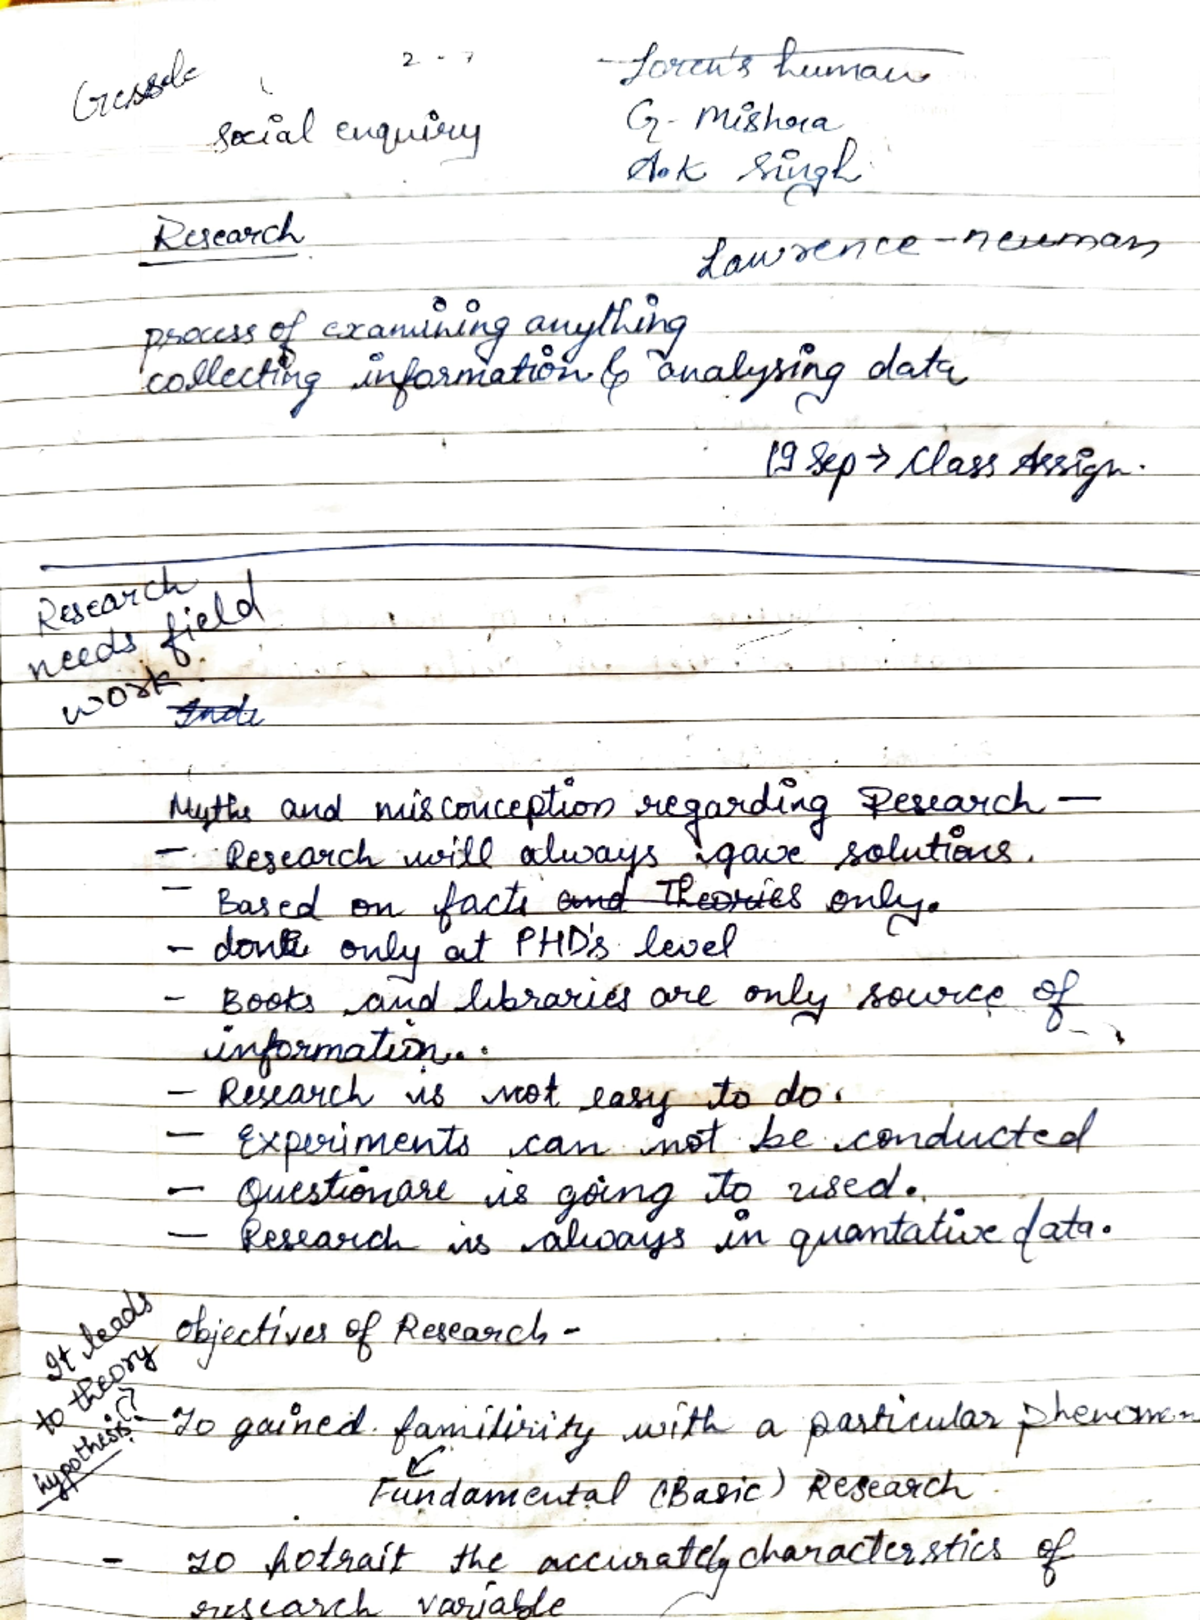 social enquiry
G. Mishra
A.K Singh
Research
Lawrence - neuman
process of examining anything
collecting information & analysing data
19 Sep → Class Assign.
Research
needs field
work.
Myths and misconception regarding Research —
- Research will always gave solutions.
- Based on facts and Theories only.
- done only at PHD's level
- Books and libraries are only source of
information..
- Research is not easy to do.
- Experiments can not be conducted
- Questionare is going to used.
- Research is always in quantative data.
It leads
to theory
hypothesis.
Objectives of Research -
- To gained familirity with a particular phenomen
Fundamental (Basic) Research
- To potrait the accurately characterstics of
research variable